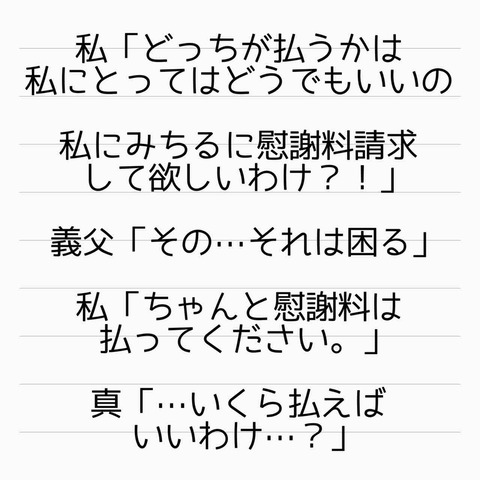 私「どっちが払うかは
私にとってはどうでもいいの
私にみちるに慰謝料請求
して欲しいわけ？！」
義父「その…それは困る」
私「ちゃんと慰謝料は
払ってください。」
真「…いくら払えば
いいわけ…？」